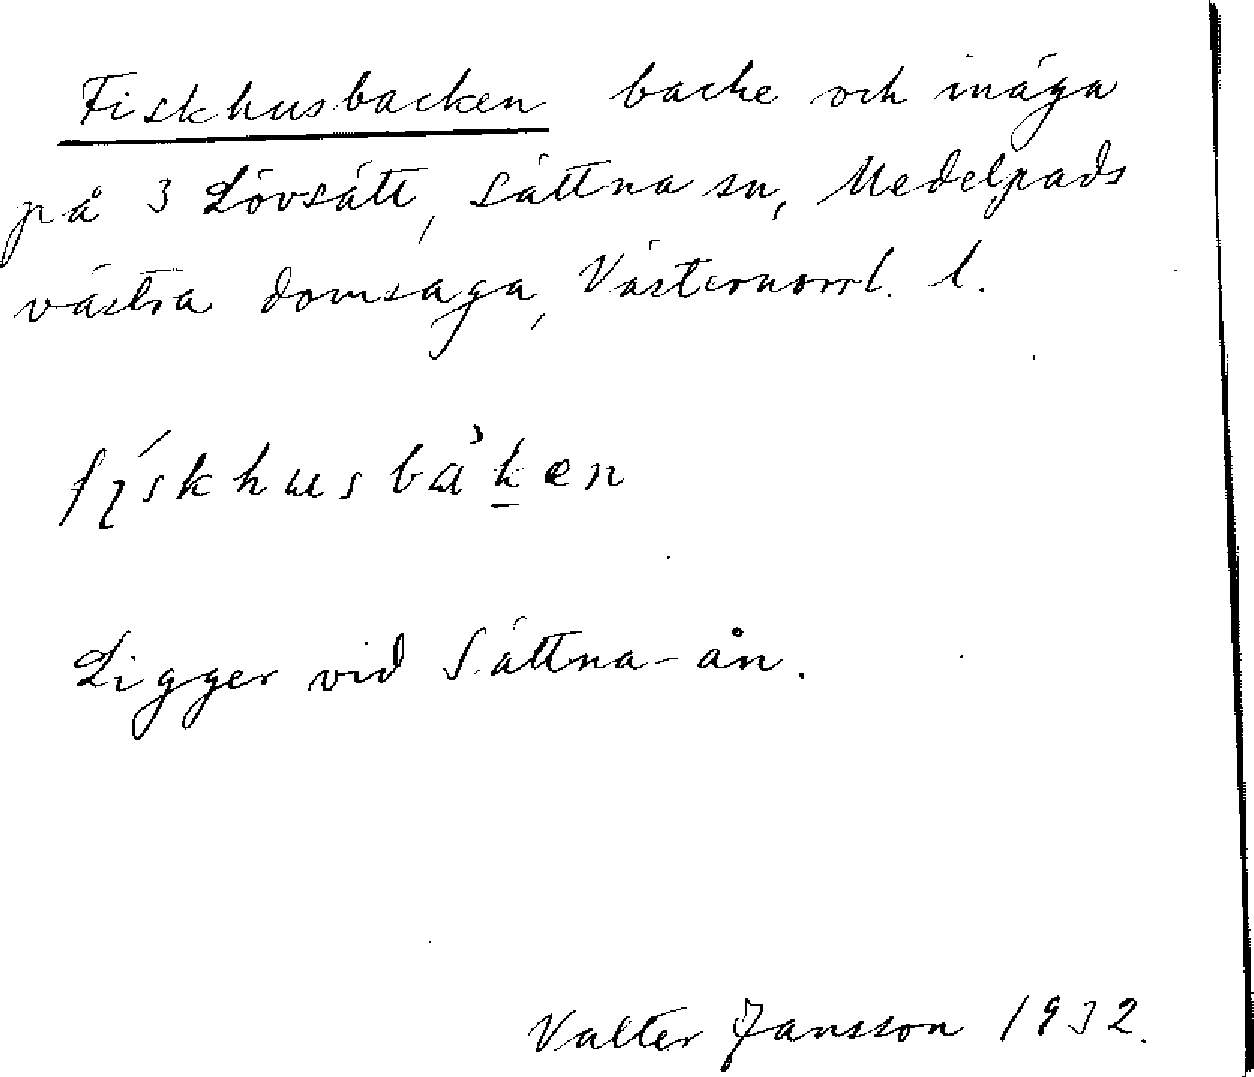 Fiskhusbacken backe och inäga
på 3 Lövsätt, Sättna sn, Medelpads
västra domsaga, Västernorrl. l.
fiskhusbaken
Ligger vid Sättna-ån.
Valter Jansson 1932.